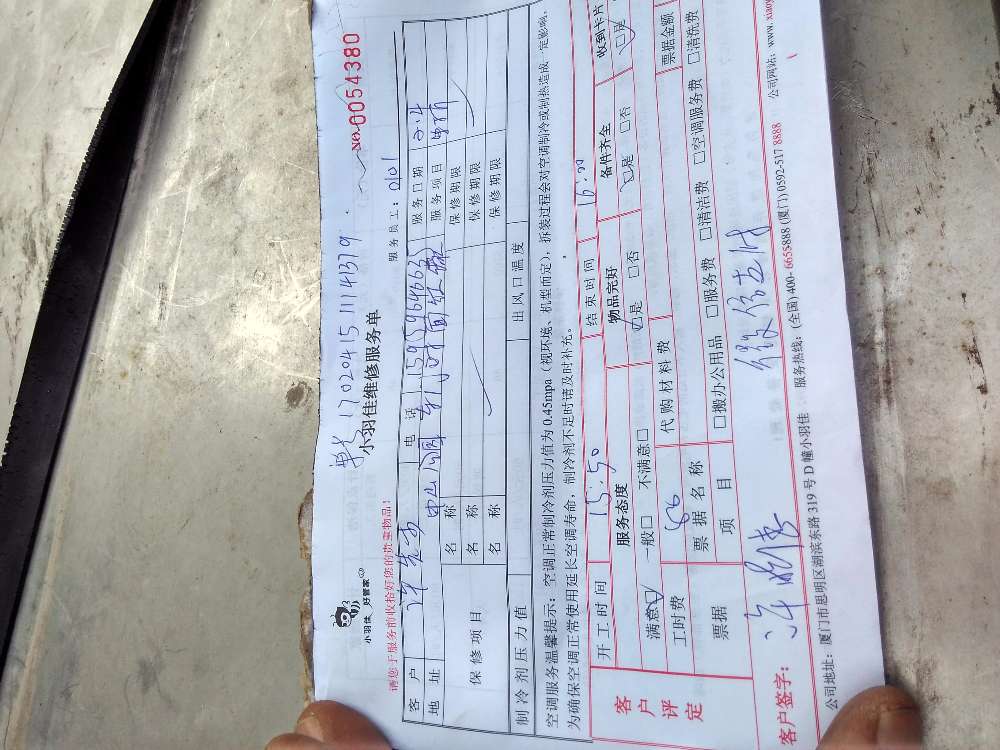 单号 1702041511141379.
NO.0054380
小羽佳 好管家
小羽佳维修服务单
请您于服务前收拾好您的贵重物品!
服务员工: 0101
客户 许先生 电话 15959646635 服务日期 2.4
地址 中山公园 服务项目
保修项目 名称 保修期限
名称 保修期限
名称 保修期限
制冷剂压力值 出风口温度
空调服务温馨提示: 空调正常制冷剂压力值为 0.45mpa (视环境、机型而定), 拆装过程会对空调制冷或制热造成一定影响,
为确保空调正常使用延长空调寿命, 制冷剂不足时请及时补充。
客户评定
开工时间 15:50 结束时间 16:20
服务态度 物品完好 备件齐全 收到卡片
满意☑ 一般□ 不满意□ ☑是 □否 ☑是 □否 ☑是
工时费 代购材料费
票据 票据名称 票据金额
项目 □搬办公用品 □服务费 □清洁费 □空调服务费 □清洗费
客户签字:
公司地址: 厦门市思明区湖滨东路 319 号 D 幢小羽佳 服务热线: (全国) 400-6655888 (厦门) 0592-517 8888 公司网站: www.xiaoy